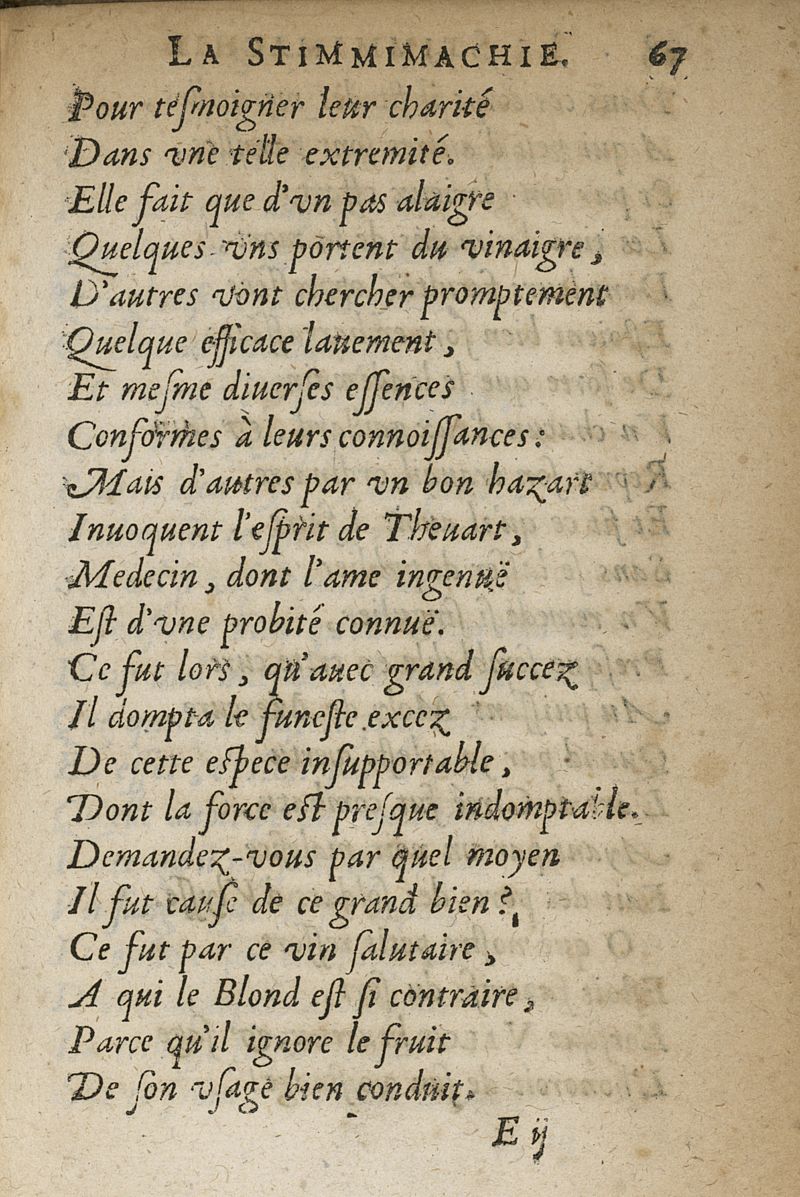 LA STIMMIMACHIE. 67
Pour teſmoigner leur charité
Dans vne telle extremité.
Elle fait que d'vn pas alaigre
Quelques vns portent du vinaigre,
D'autres vont chercher promptement
Quelque efficace lauement,
Et meſme diuerſes eſſences
Conformes à leurs connoiſſances:
Mais d'autres par vn bon hazart
Inuoquent l'eſprit de Theuart,
Medecin, dont l'ame ingenuë
Eſt d'vne probité connuë.
Ce fut lors, qu'auec grand ſuccez
Il dompta le funeſte excez
De cette eſpece inſupportable,
Dont la force eſt preſque indomptable.
Demandez-vous par quel moyen
Il fut cauſe de ce grand bien?
Ce fut par ce vin ſalutaire,
A qui le Blond eſt ſi contraire,
Parce qu'il ignore le fruit
De ſon vſage bien conduit.
E ij